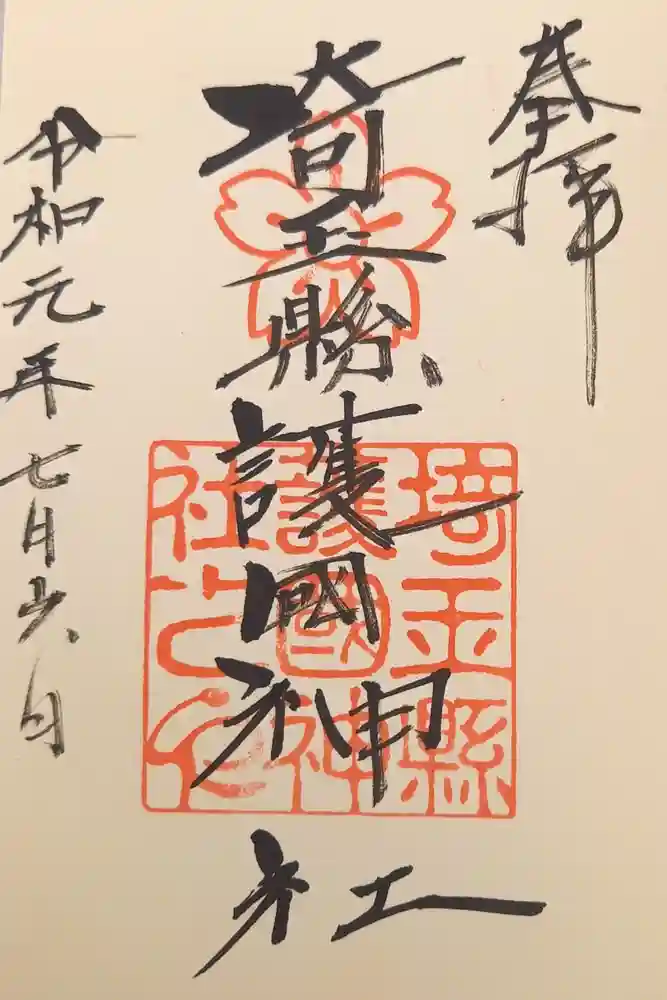 奉拝
埼玉縣護國神社
埼玉縣
護國神
社之印
令和元年七月六日